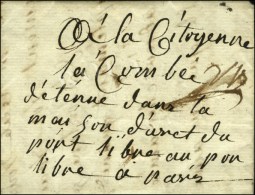 A la Citoyenne
la Combe
détenue dans la
maison d'aret du
port libre au por
libre a paris